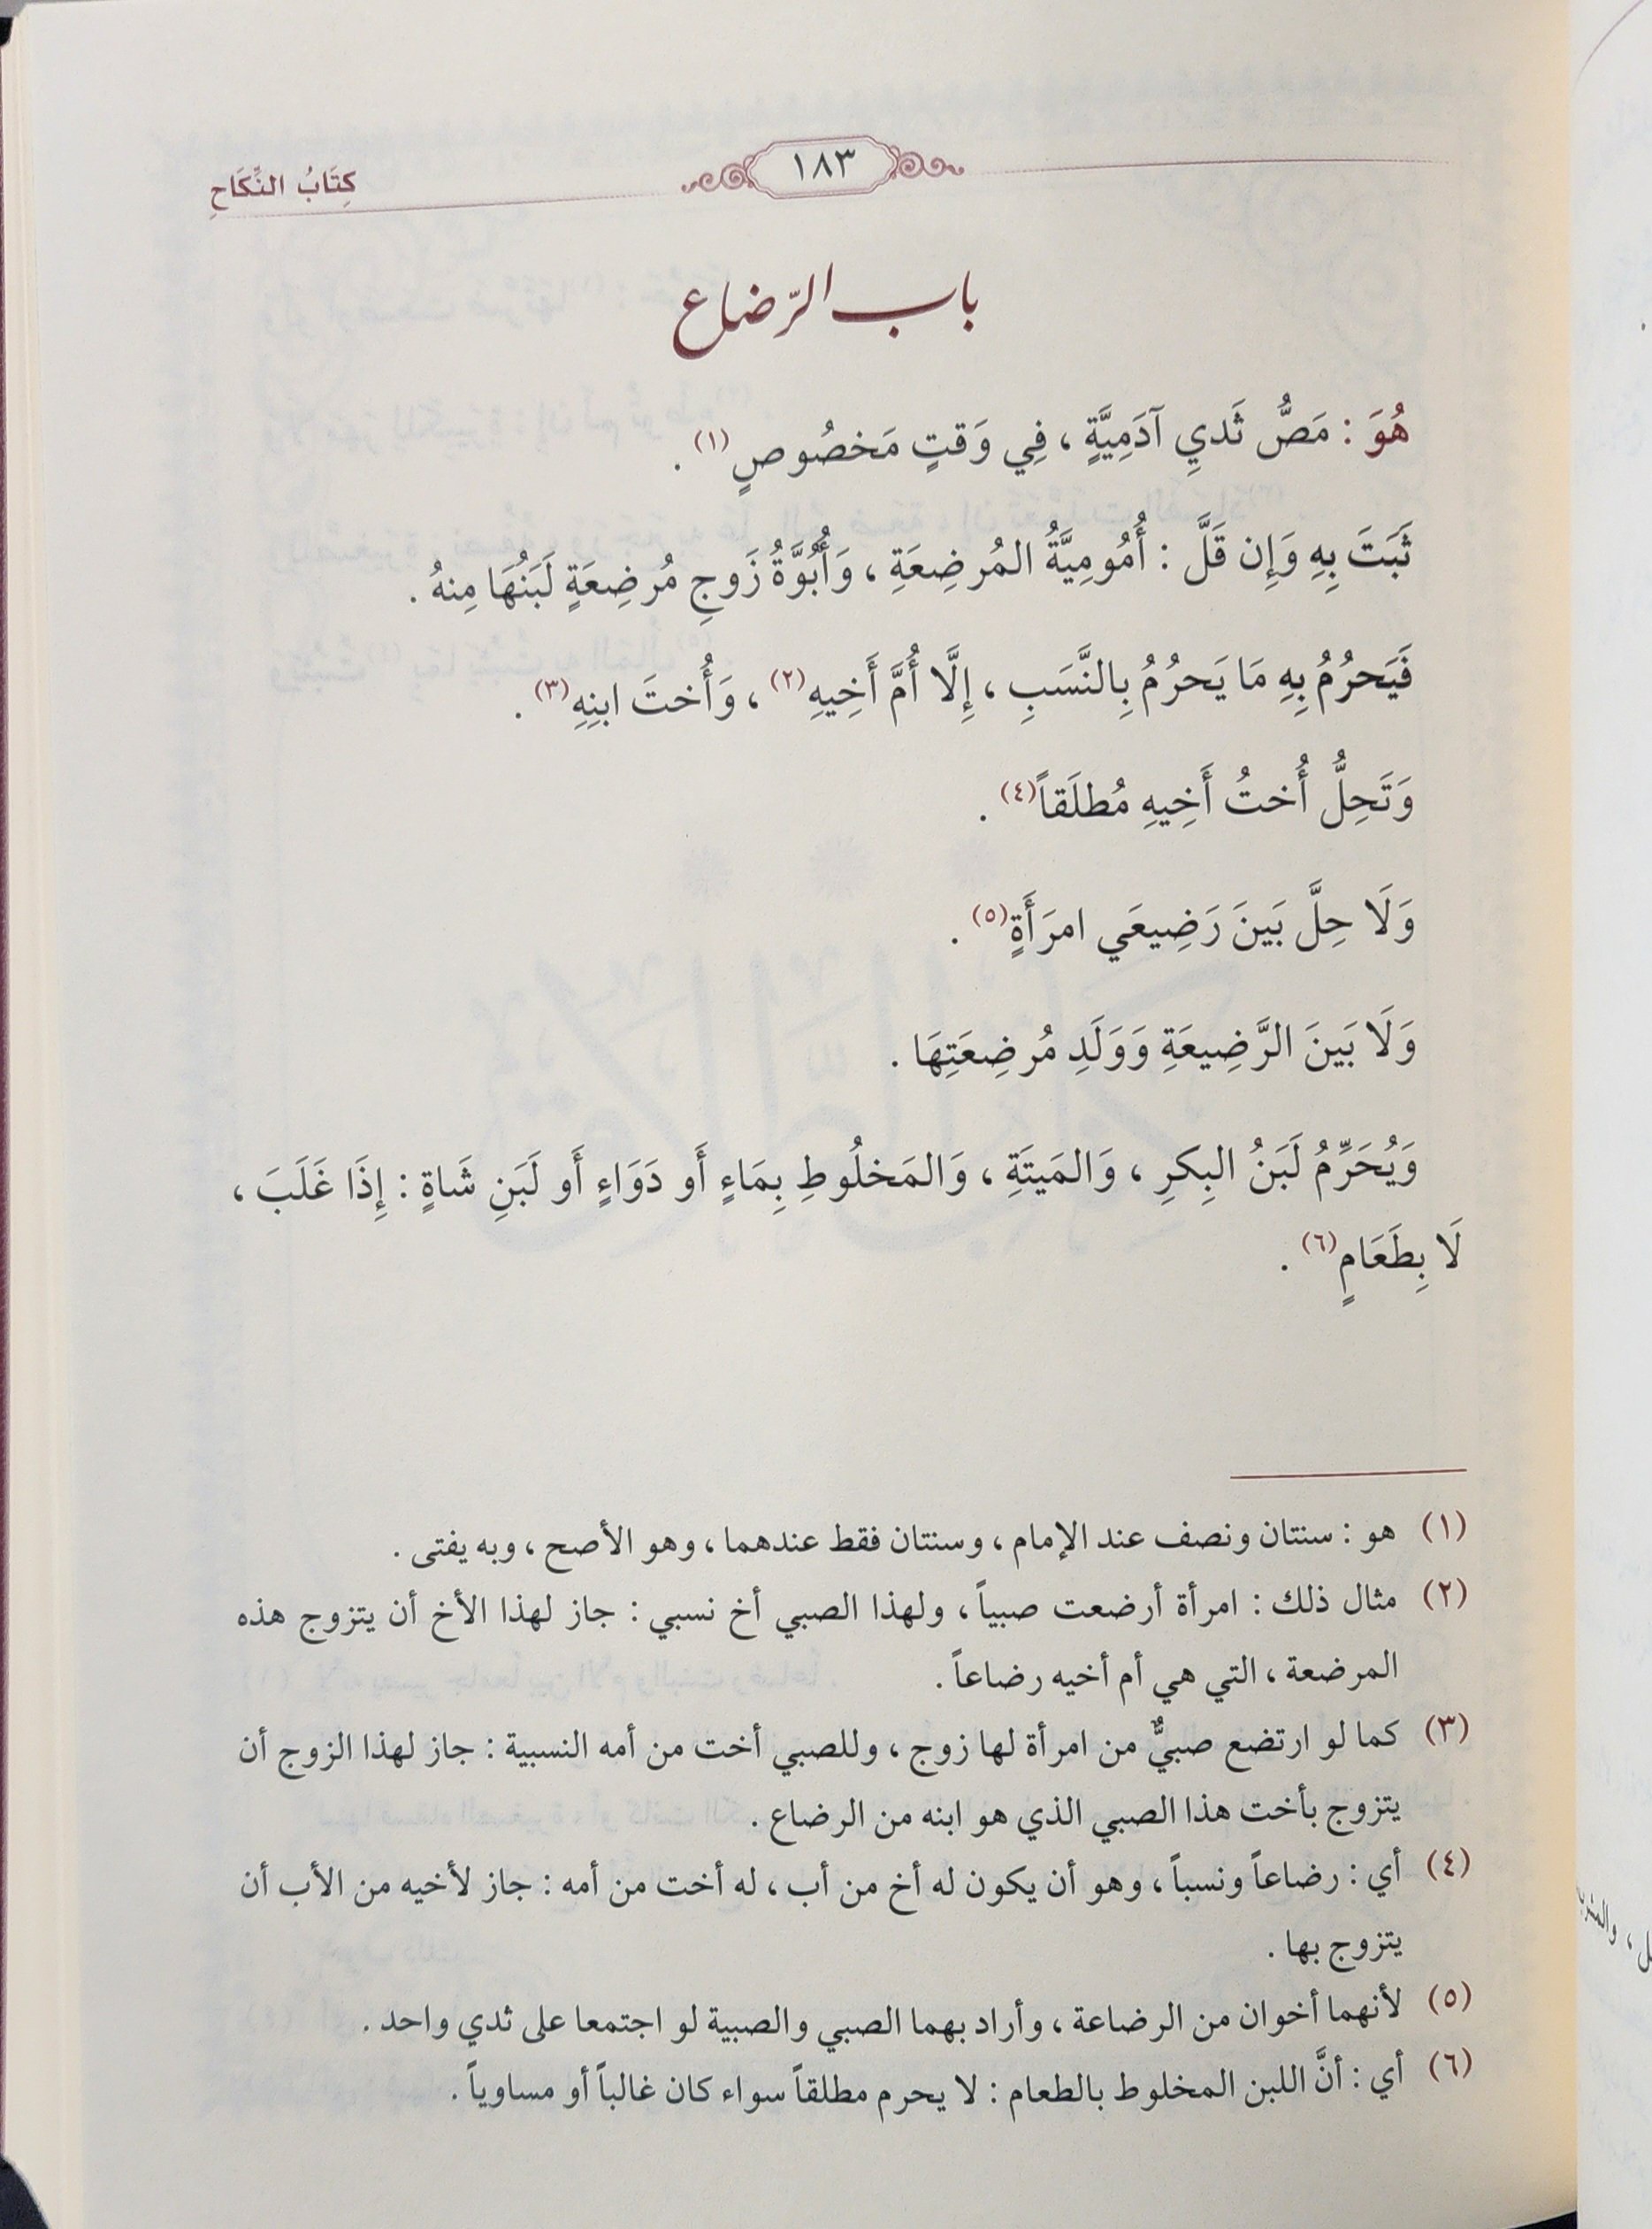 ١٨٣
كِتَابُ النِّكَاحِ
باب الرّضاع
هُوَ : مَصُّ ثَديِ آدَمِيَّةٍ ، فِي وَقتٍ مَخصُوصٍ (١) .
ثَبَتَ بِهِ وَإِن قَلَّ : أُمُومِيَّةُ المُرضِعَةِ ، وَأُبُوَّةُ زَوجِ مُرضِعَةٍ لَبَنُهَا مِنهُ .
فَيَحرُمُ بِهِ مَا يَحرُمُ بِالنَّسَبِ ، إِلَّا أُمَّ أَخِيهِ (٢) ، وَأُختَ ابنِهِ (٣) .
وَتَحِلُّ أُختُ أَخِيهِ مُطلَقاً (٤) .
وَلَا حِلَّ بَينَ رَضِيعَي امرَأَةٍ (٥) .
وَلَا بَينَ الرَّضِيعَةِ وَوَلَدِ مُرضِعَتِهَا .
وَيُحَرِّمُ لَبَنُ البِكرِ ، وَالمَيتَةِ ، وَالمَخلُوطِ بِمَاءٍ أَو دَوَاءٍ أَو لَبَنِ شَاةٍ : إِذَا غَلَبَ ،
لَا بِطَعَامٍ (٦) .
(١) هو : سنتان ونصف عند الإمام ، وسنتان فقط عندهما ، وهو الأصح ، وبه يفتى .
(٢) مثال ذلك : امرأة أرضعت صبياً ، ولهذا الصبي أخ نسبي : جاز لهذا الأخ أن يتزوج هذه
المرضعة ، التي هي أم أخيه رضاعاً .
(٣) كما لو ارتضع صبيٌّ من امرأة لها زوج ، وللصبي أخت من أمه النسبية : جاز لهذا الزوج أن
يتزوج بأخت هذا الصبي الذي هو ابنه من الرضاع .
(٤) أي : رضاعاً ونسباً ، وهو أن يكون له أخ من أب ، له أخت من أمه : جاز لأخيه من الأب أن
يتزوج بها .
(٥) لأنهما أخوان من الرضاعة ، وأراد بهما الصبي والصبية لو اجتمعا على ثدي واحد .
(٦) أي : أنَّ اللبن المخلوط بالطعام : لا يحرم مطلقاً سواء كان غالباً أو مساوياً .